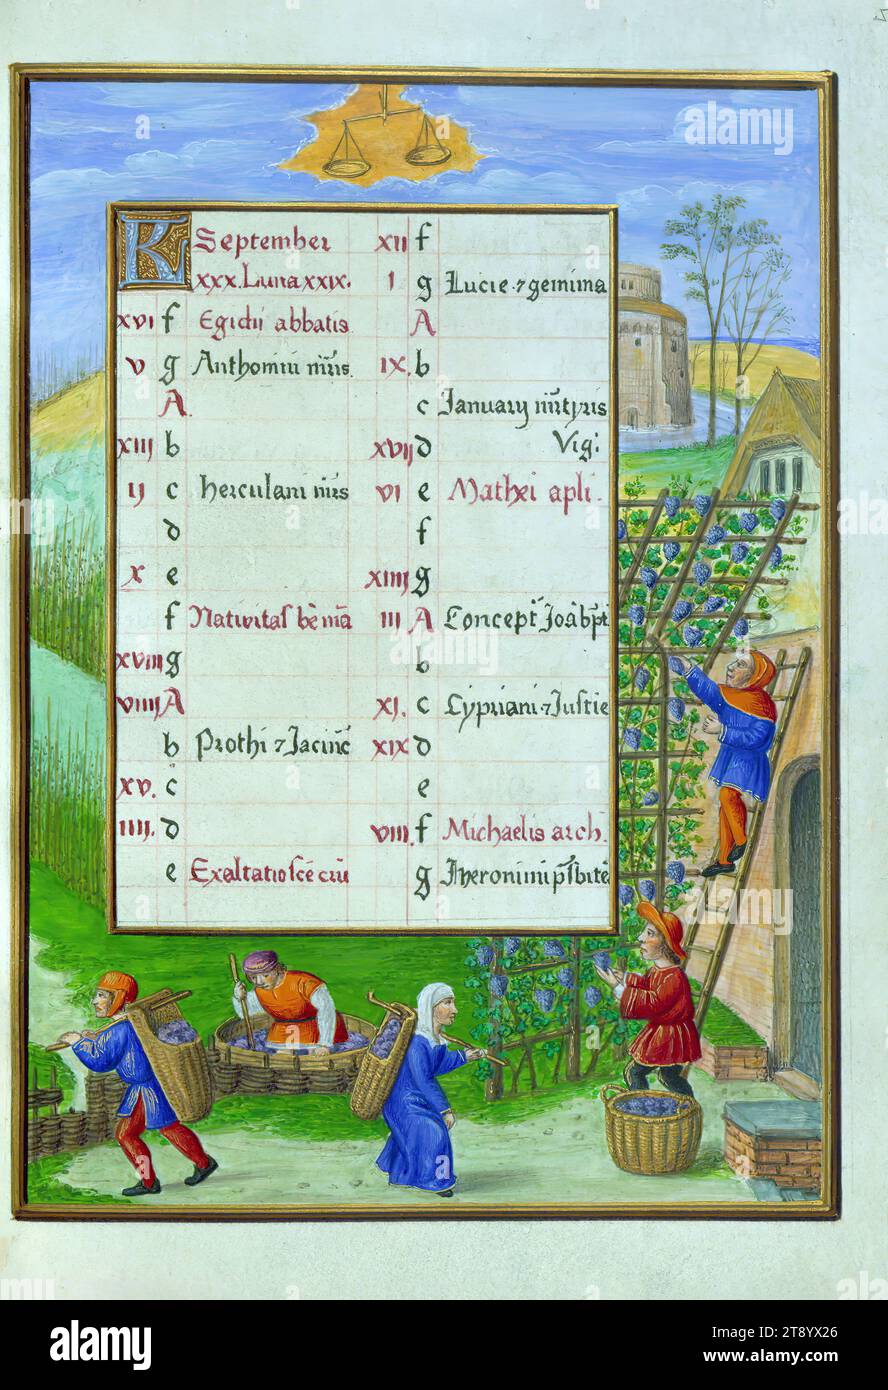 K September
xxx. Luna xxix.
xvi f Egidii abbatis
v g Anthonini m̄is
A
xiii b
ij c herculani m̄is
d
x e
f Nativitas bē mā
xviii g
viiii A
b Prothi ⁊ Jacinc̄
xv. c
iiii. d
e Exaltatio scē crū
xii f
i g Lucie ⁊ gemima
A
ix. b
c January m̄tyris
xvij d Vigi
vi e Mathei apli.
f
xiiij g
iii A Concept̄ Joābpt̄
b
xi. c Cypriani ⁊ Justie
xix d
e
viii. f Michaelis arch.
g Iheronimi p̄sbitē
alamy
Image ID: 2T8YX26
www.alamy.com